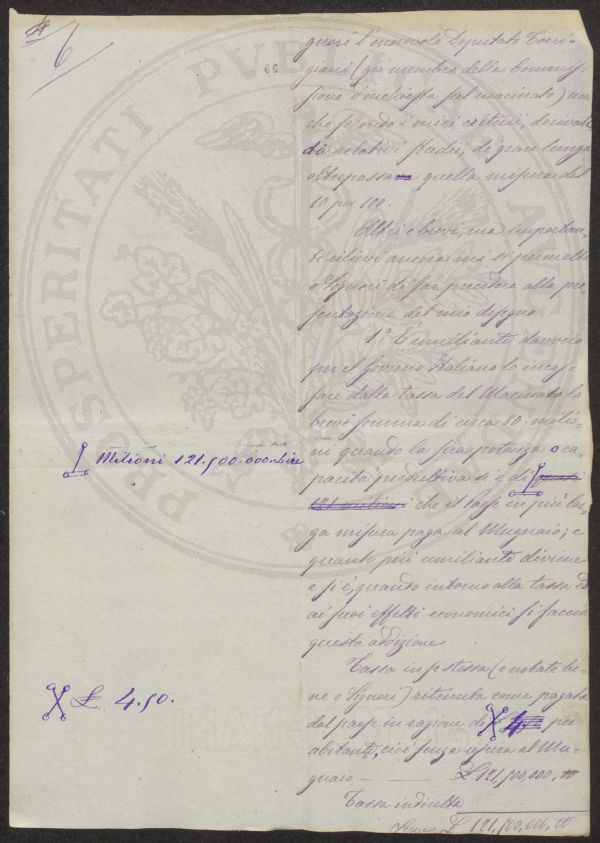 6
gnori l'onorevole Deputato Torri-
giani (già membro della Commis-
sione d'inchiesta pel macinato) non
che secondo i miei criteri, derivati
da relativi studi, di gran lunga
oltrepassa quella misura del
10 per 100.
Altri e brevi, ma importan-
ti rilievi ancora mi si permetta
o Signori di far precedere alla pre-
sentazione del mio disegno.
1.° È umiliante davvero
per il Governo Italiano lo incas-
sare dalla tassa del Macinato la
breve somma di circa 80. milio-
ni quando la sua potenza o ca-
pacità produttiva si è di
Milioni 121.500.000 Lire
121 milioni che il Paese in più lar-
ga misura paga al Mugnaio; e
quanto più umiliante diviene
e si è, quando intorno alla tassa ed
ai suoi effetti economici si faccia
questa addizione
Tassa in se stessa (e notate be-
ne o Signori) ritenuta come pagata
dal paese in ragione di per
£ 4.50.
abitante, cioè senza usura al Mu-
gnaio £ 121,500,000, 00
Tassa indiretta
Somma £ 121,500,000, 00
PROSPERITATI PVBLICAE AVGENDAE